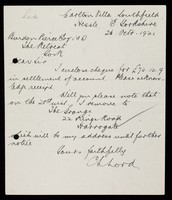 Carlton Villa, Southfield
Hessle E Yorkshire
26 Octr. 1921
Bedford Pierce Esq. M.D
The Retreat
York
Dear Sir
I enclose cheque for £74
in settlement of account. Please
receipt.
Will you please note that
on the 28th inst, I remove to
The Grange
22 Kings Road
Harrogate
which will be my address until further
notice
Yours faithfully